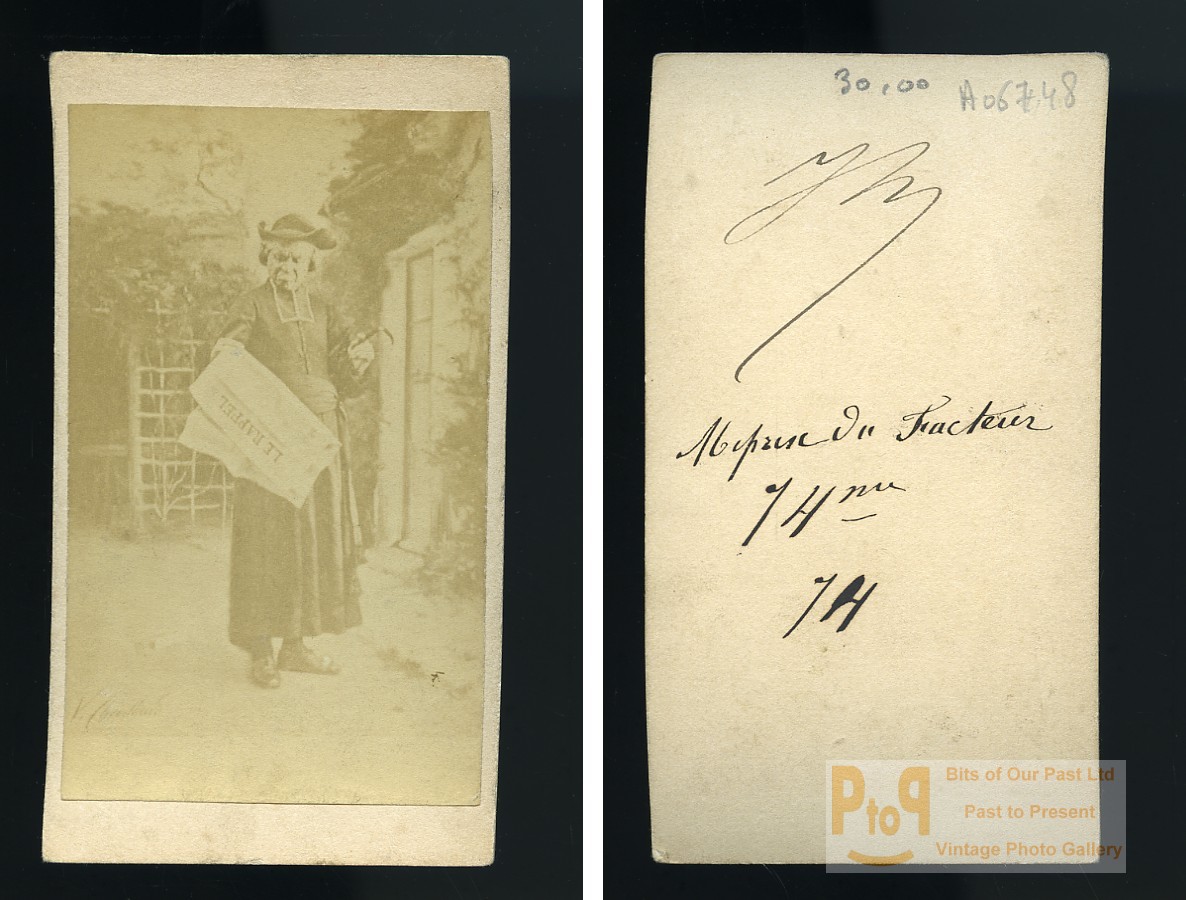 LE RAPPEL
30,00 A06748
Méprise du Facteur
74me
74
PtoP
Bits of Our Past Ltd
Past to Present
Vintage Photo Gallery